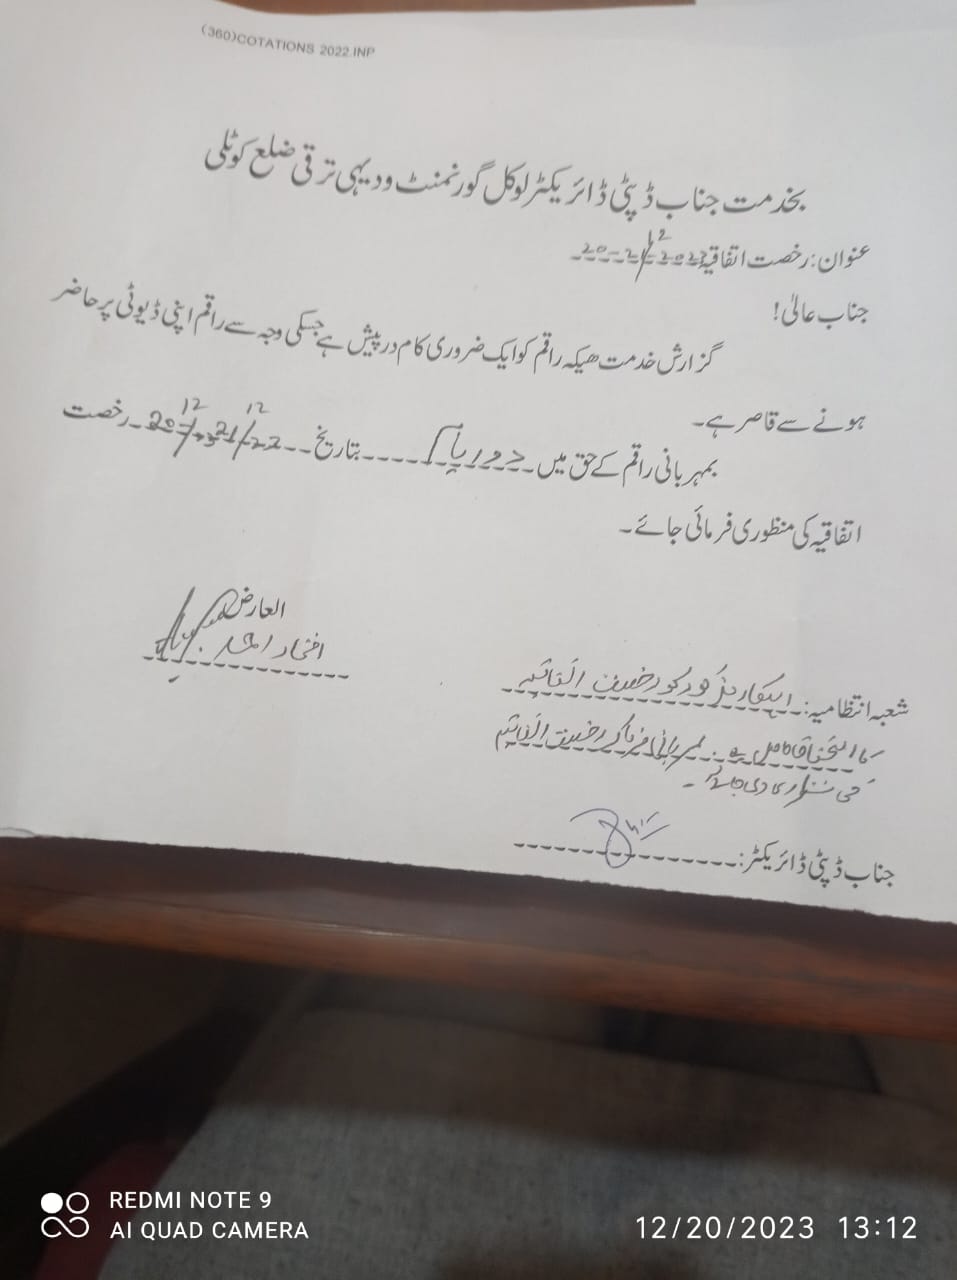 (360)COTATIONS 2022.INP
بخدمت جناب ڈپٹی ڈائریکٹر لوکل گورنمنٹ ودیہی ترقی ضلع کوٹلی
عنوان: رخصت اتفاقیہ
جناب عالیٰ!
گزارش خدمت ھیکہ راقم کو ایک ضروری کام درپیش ہے جسکی وجہ سے راقم اپنی ڈیوٹی پر حاضر
ہونے سے قاصر ہے۔
بمہربانی راقم کے حق میں دو یوم بتاریخ رخصت
اتفاقیہ کی منظوری فرمائی جائے۔
العارض
افتخار احمد
شعبہ انتظامیہ: اہلکار مذکور کو رخصت اتفاقیہ
کا استحقاق حاصل ہے۔ رخصت اتفاقیہ
کی منظوری دی جائے۔
جناب ڈپٹی ڈائریکٹر:
REDMI NOTE 9
AI QUAD CAMERA
12/20/2023 13:12